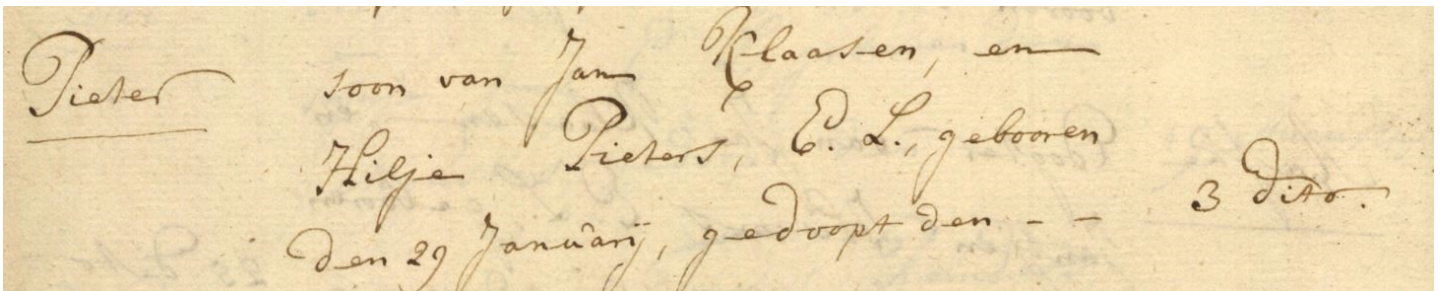 Pieter soon van Jan Klaasen, en
Hilje Pieters, E. L., gebooren
den 29 Januarij, gedoopt den - - 3 dito.